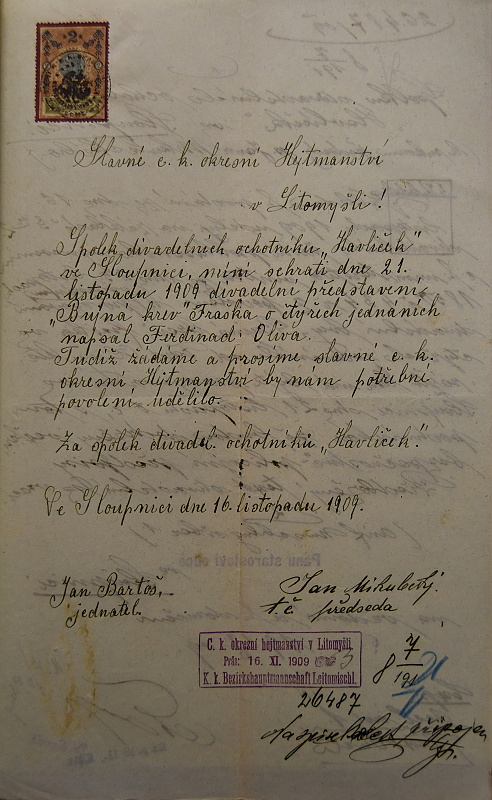 2
Slavné c. k. okresní Hejtmanství
v Litomyšli!
Spolek divadelních ochotníku „Havlíček“
ve Sloupnici, míní sehráti dne 21.
listopadu 1909 divadelní představení
„Bujna krev“ Fraška o čtyřech jednáních
napsal Ferdinad: Oliva.
Tudíž žádáme a prosíme slavné c. k.
okresní Hejtmanství by nám potřební
povolení udělilo.
Za spolek divadel. ochotníků „Havlíček“.
Ve Sloupnici dne 16. listopadu 1909.
Jan Bartoš,
jednatel.
Jan Mikulecký.
t. č. předseda
C. k. okresní hejtmanství v Litomyšli.
Präs: 16. XI. 1909
K. k. Bezirkshauptmannschaft Leitomischl.
8 7
191
26487